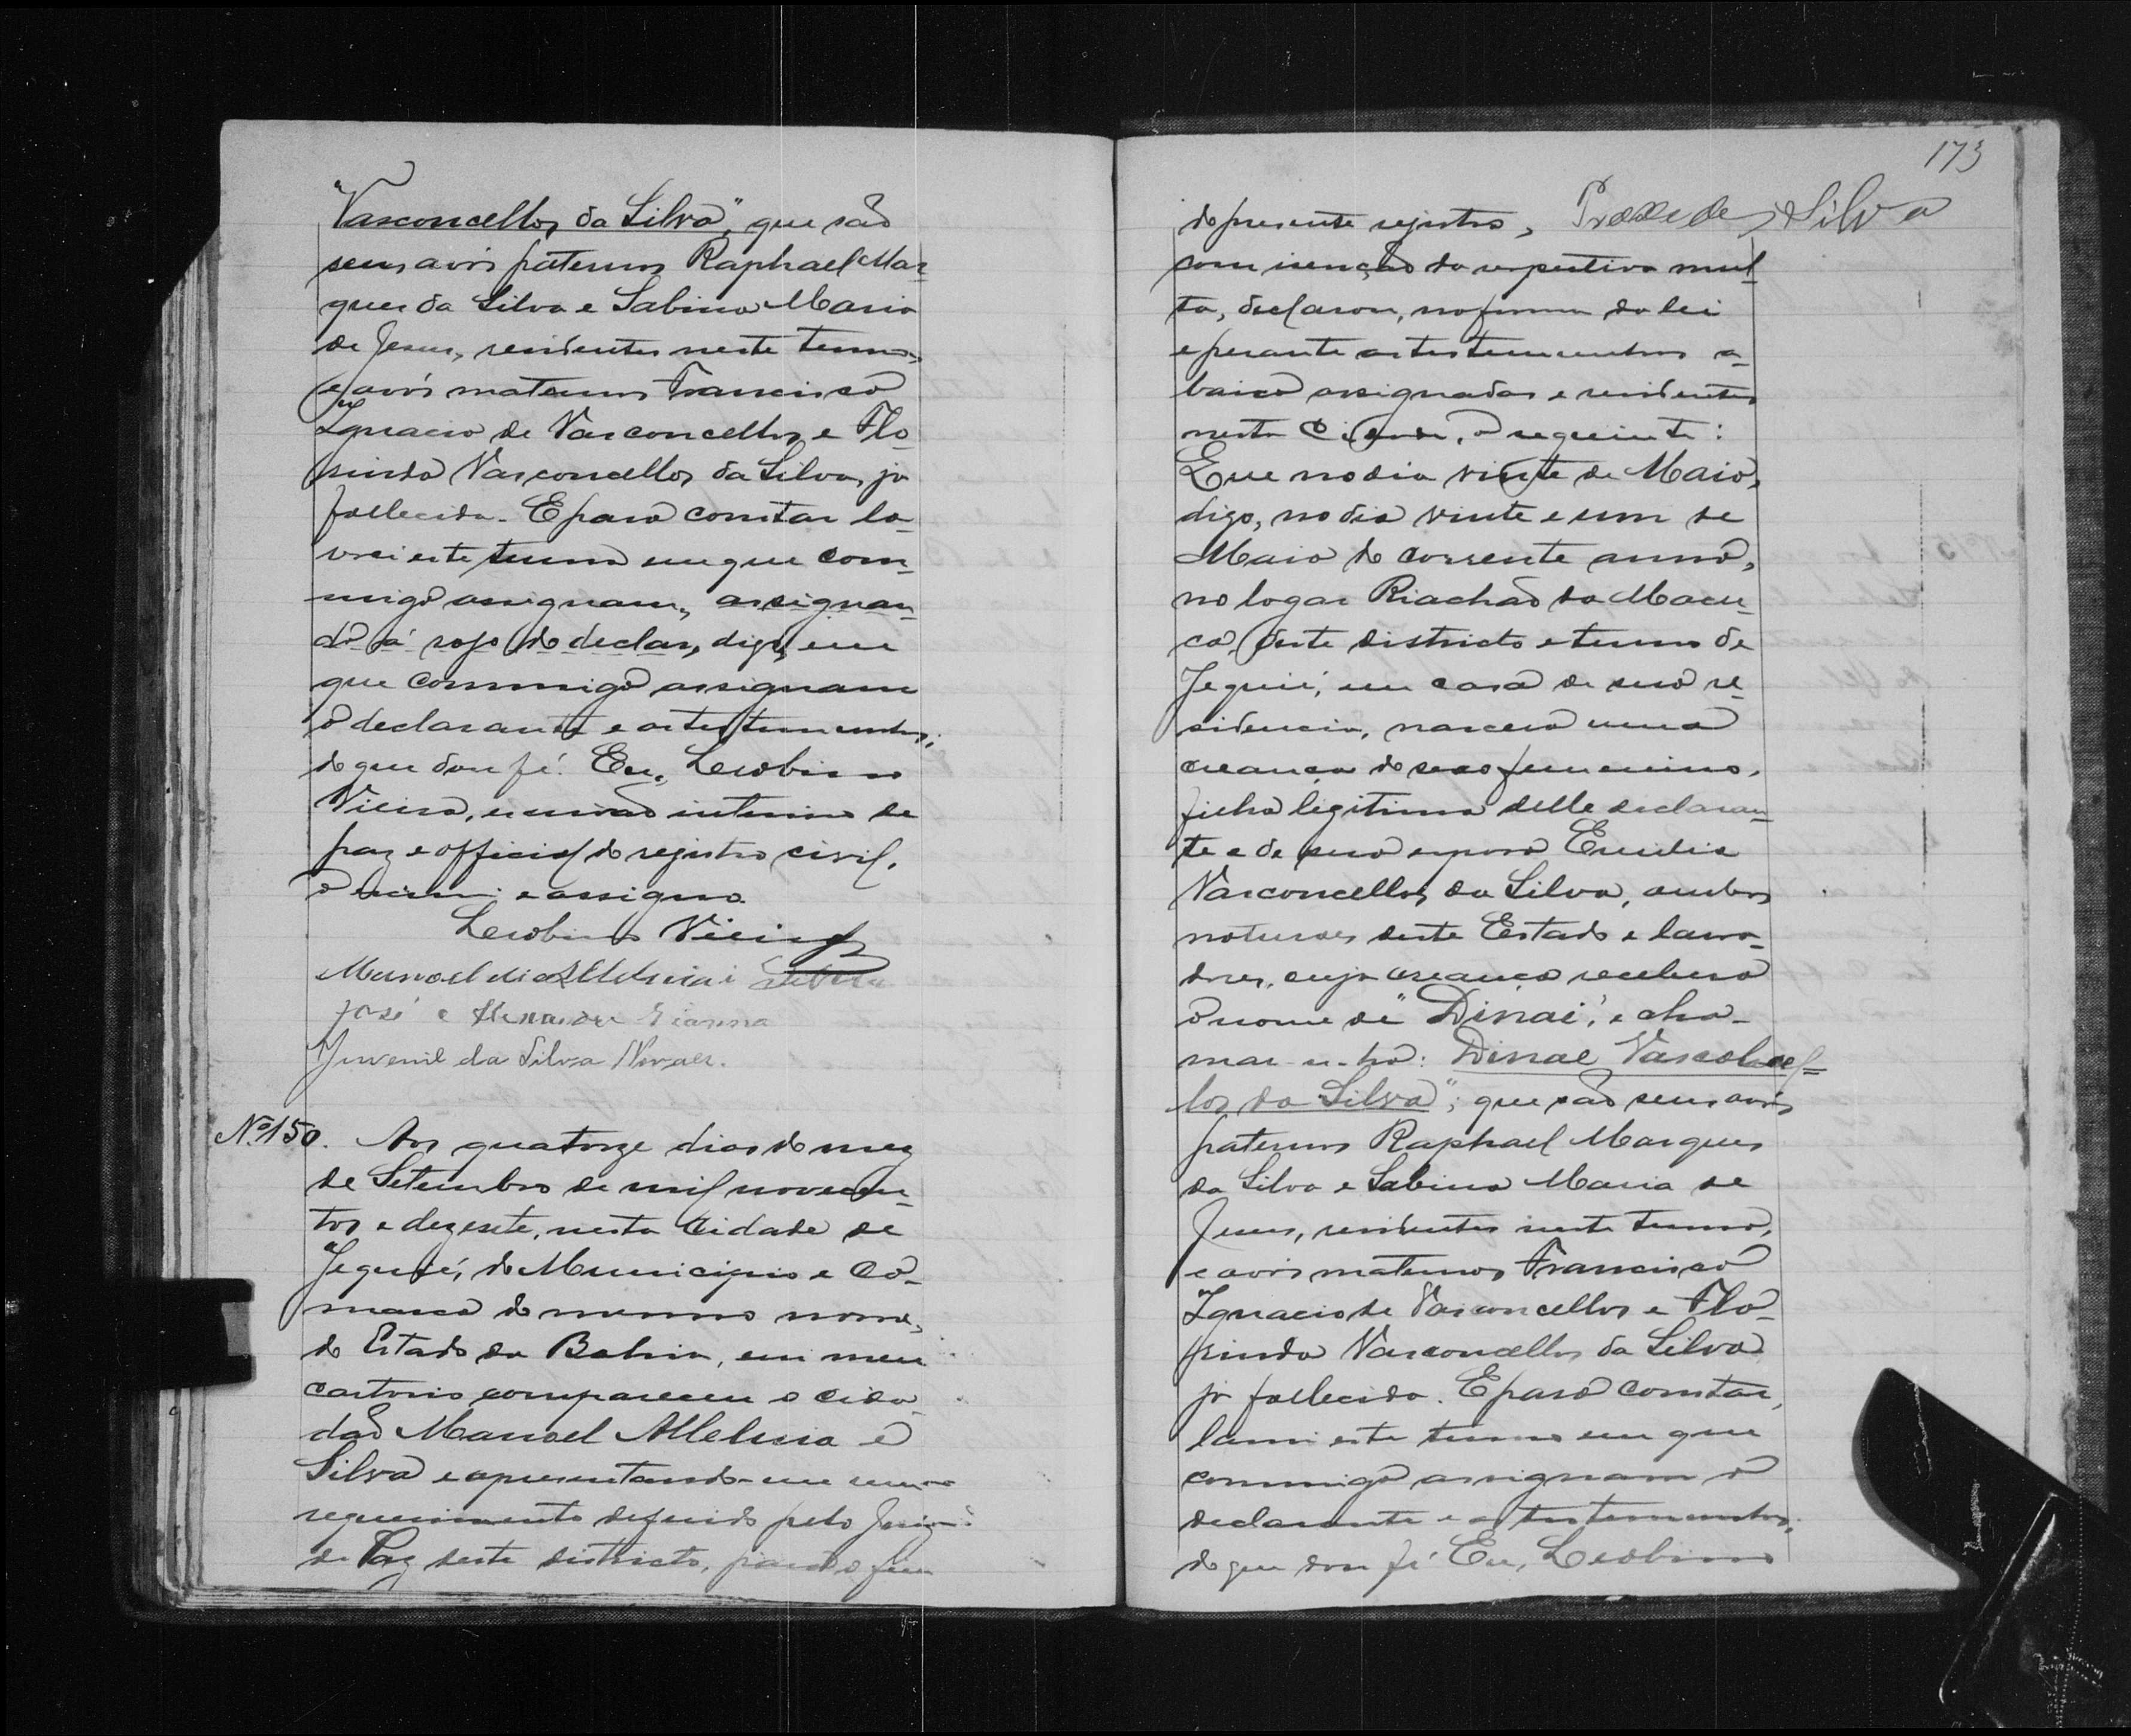 "Vasconcellos da Silva", que são
seus avós paternos Raphael Mar-
ques da Silva e Sabina Maria
de Jesus, residentes neste termo,
e avós maternos Francisco
Ignacio de Vasconcellos e Flo-
rinda Vasconcellos da Silva, ja
fallecida. E para constar la-
vrei este termo em que com-
migo assignam, assignan-
do á rogo do declar, digo, em
que commigo assignam
o declarante e as testemunhas,
do que dou fé. Eu, Leobino
Vieira, escrivão interino de
paz e official do registro civil,
o escrevi e assigno.
Leobino Vieira
Manoel Silva
José Alexandre
Juvenil da Silva Novaes.
Nº 150. Aos quatorze dias do mez
de Setembro de mil novecen-
tos e dezesete, nesta Cidade de
Jequié, do Municipio e Co-
marca do mesmo nome,
do Estado da Bahia, em meu
cartorio compareceu o cida-
dão Manoel Alleluia e
Silva e apresentando-me um
requerimento deferido pelo Juiz
de Paz deste districto, para o fim
173
do presente registro, Silva
com isenção da respectiva mul-
ta, declarou, na forma da lei
e perante as testemunhas a-
baixo assignadas e residentes
nesta Cidade, o seguinte:
Que no dia vinte de Maio,
digo, no dia vinte e um de
Maio do corrente anno,
no logar Riachão do Macu-
co, deste districto e termo de
Jequié, em casa de sua re-
sidencia, nasceu uma
creança do sexo femenino,
filha legitima delle declaran-
te e de sua esposa Emilia
Vasconcellos da Silva, ambos
naturaes deste Estado e lavra-
dores, cuja creança recebera
o nome de "Dinae", e cha-
mar-se-ha: Dinae Vasconcel-
los da Silva"; que são seus avós
paternos Raphael Marques
da Silva e Sabina Maria de
Jesus, residentes neste termo,
e avós maternos Francisco
Ignacio de Vasconcellos e Flo-
rinda Vasconcellos da Silva
ja fallecida. E para constar,
lavrei este termo em que
commigo assignam o
declarante e as testemunhas,
do que dou fé. Eu, Leobino